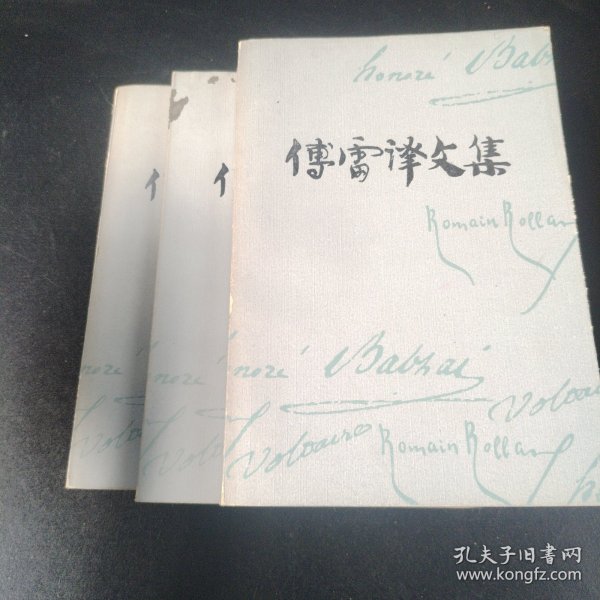 honoré Balza
傅雷译文集
Romain Rollan
honoré Balzac
Voltaire
Romain Rollan
Voltai
noré
noré
Volt
Volta
孔夫子旧书网
www.kongfz.com